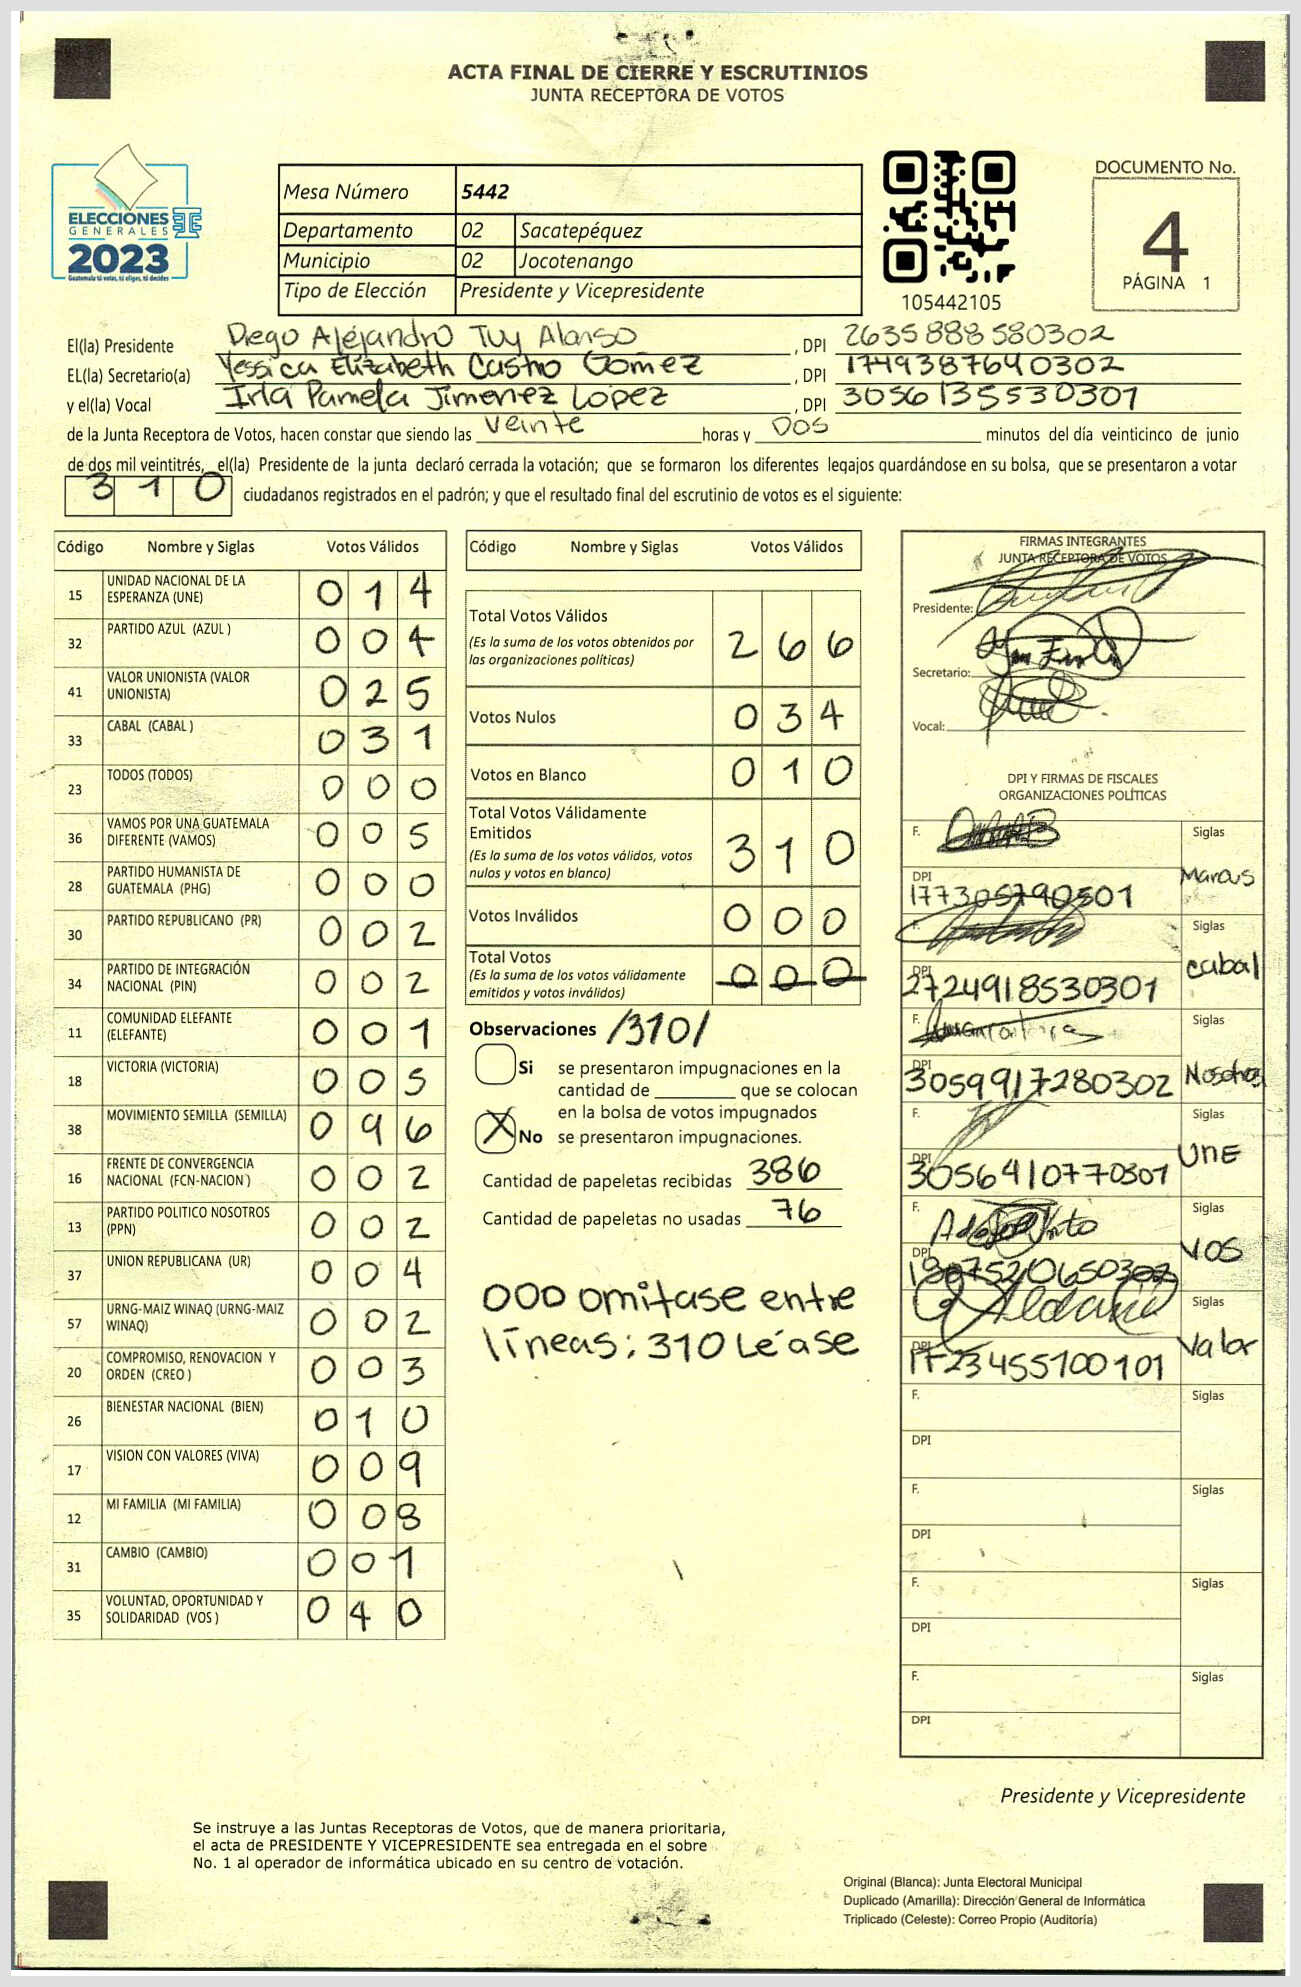 ACTA FINAL DE CIERRE Y ESCRUTINIOS
JUNTA RECEPTORA DE VOTOS
ELECCIONES
GENERALES
2023
Guatemala tú votas, tú eliges, tú decides
Mesa Número 5442
Departamento 02 Sacatepéquez
Municipio 02 Jocotenango
Tipo de Elección Presidente y Vicepresidente
105442105
DOCUMENTO No.
4
PÁGINA 1
El(la) Presidente Diego Alejandro Tuy Alonso , DPI 2635888580302
EL(la) Secretario(a) Yessica Elizabeth Castro Gomez , DPI 1749387640302
y el(la) Vocal Irla Pamela Jimenez Lopez , DPI 3056135530301
de la Junta Receptora de Votos, hacen constar que siendo las veinte horas y DOS minutos del día veinticinco de junio
de dos mil veintitrés, el(la) Presidente de la junta declaró cerrada la votación; que se formaron los diferentes legajos guardándose en su bolsa, que se presentaron a votar
310 ciudadanos registrados en el padrón; y que el resultado final del escrutinio de votos es el siguiente:
Código Nombre y Siglas Votos Válidos
15 UNIDAD NACIONAL DE LA ESPERANZA (UNE) 014
32 PARTIDO AZUL (AZUL ) 004
41 VALOR UNIONISTA (VALOR UNIONISTA) 025
33 CABAL (CABAL ) 031
23 TODOS (TODOS) 000
36 VAMOS POR UNA GUATEMALA DIFERENTE (VAMOS) 005
28 PARTIDO HUMANISTA DE GUATEMALA (PHG) 000
30 PARTIDO REPUBLICANO (PR) 002
34 PARTIDO DE INTEGRACIÓN NACIONAL (PIN) 002
11 COMUNIDAD ELEFANTE (ELEFANTE) 001
18 VICTORIA (VICTORIA) 005
38 MOVIMIENTO SEMILLA (SEMILLA) 096
16 FRENTE DE CONVERGENCIA NACIONAL (FCN-NACION ) 002
13 PARTIDO POLITICO NOSOTROS (PPN) 002
37 UNION REPUBLICANA (UR) 004
57 URNG-MAIZ WINAQ (URNG-MAIZ WINAQ) 002
20 COMPROMISO, RENOVACION Y ORDEN (CREO ) 003
26 BIENESTAR NACIONAL (BIEN) 010
17 VISION CON VALORES (VIVA) 009
12 MI FAMILIA (MI FAMILIA) 008
31 CAMBIO (CAMBIO) 001
35 VOLUNTAD, OPORTUNIDAD Y SOLIDARIDAD (VOS ) 040
Código Nombre y Siglas Votos Válidos
Total Votos Válidos 266
(Es la suma de los votos obtenidos por
las organizaciones políticas)
Votos Nulos 034
Votos en Blanco 010
Total Votos Válidamente
Emitidos 310
(Es la suma de los votos válidos, votos
nulos y votos en blanco)
Votos Inválidos 000
Total Votos 000
(Es la suma de los votos válidamente
emitidos y votos inválidos)
Observaciones /310/
Si se presentaron impugnaciones en la
cantidad de ________ que se colocan
en la bolsa de votos impugnados
X No se presentaron impugnaciones.
Cantidad de papeletas recibidas 386
Cantidad de papeletas no usadas 76
000 omitase entre
lineas: 310 Léase
FIRMAS INTEGRANTES
JUNTA RECEPTORA DE VOTOS
Presidente:
Secretario:
Vocal:
DPI Y FIRMAS DE FISCALES
ORGANIZACIONES POLÍTICAS
F. Siglas
DPI 177305790501
F. Siglas cabal
DPI 2724918530301
F. Siglas Nosotros
DPI 3059917280302
F. Siglas UNE
DPI 3056410770301
F. Siglas VOS
DPI
F. Siglas Valor
DPI 1723455100101
F. Siglas
DPI
F. Siglas
DPI
F. Siglas
DPI
F. Siglas
DPI
Presidente y Vicepresidente
Se instruye a las Juntas Receptoras de Votos, que de manera prioritaria,
el acta de PRESIDENTE Y VICEPRESIDENTE sea entregada en el sobre
No. 1 al operador de informática ubicado en su centro de votación.
Original (Blanca): Junta Electoral Municipal
Duplicado (Amarilla): Dirección General de Informática
Triplicado (Celeste): Correo Propio (Auditoría)